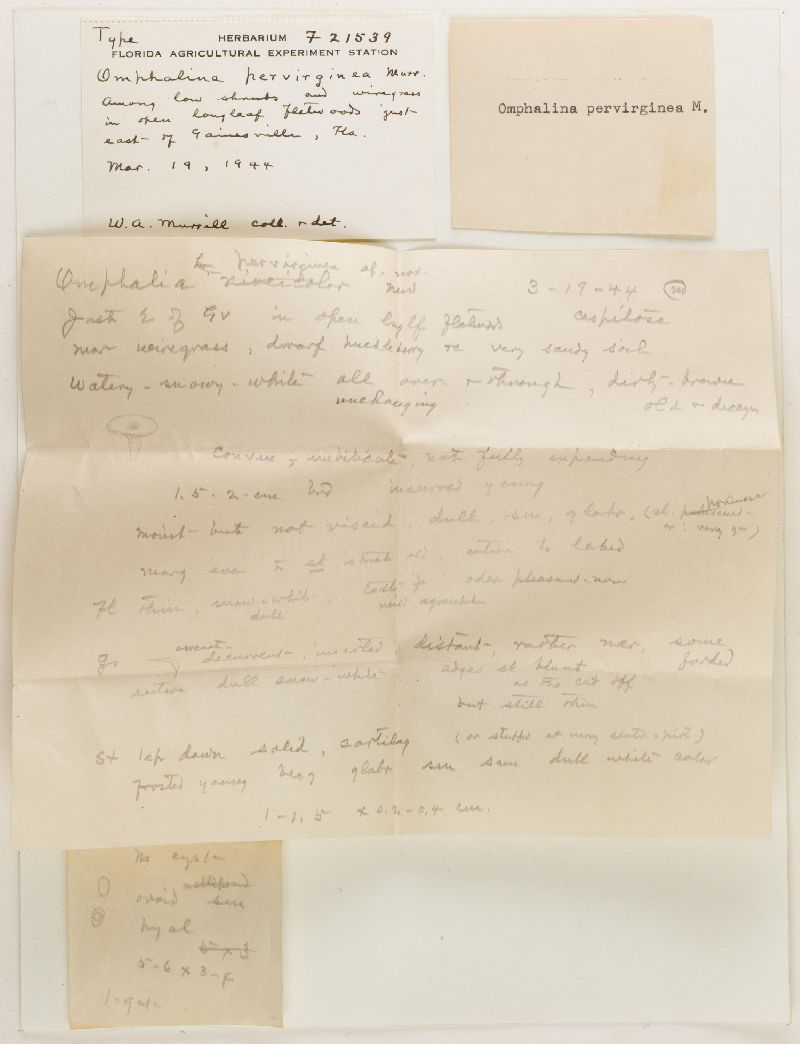 Type HERBARIUM F 21539
FLORIDA AGRICULTURAL EXPERIMENT STATION
Omphalina pervirginea Murr.
Among low shrubs and wiregrass
in open longleaf flatwoods just
east of Gainesville, Fla.
Mar. 19, 1944
W.A. Murrill coll. & det.
Omphalina pervirginea M.
pervirginea sp. nov.
Omphalia niveicolor new 3-19-44 m
Just E. of Gv in open lnglf flatwds cespitose
near wiregrass, dwarf huckleberry in very sandy soil
Watery-snowy-white all over & through, dirty-brown
unchanging old & decayin
Convex, umbilicate, not fully expanding
1.5-2 cm brd incurved young
moist but not viscid, dull, sm, glabr, (sl.
marg even to sl striate old, entire to lobed
Fl thin, snow-white, taste odor pleasant-
dull mild agreeable
arcuate-
decurrent, inserted, distant, rather nar, some
forked
entire dull snow-white edges sl blunt
as tho cut off
but still thin
St 1cp down solid, cartilag (or stuffed at very center-pist)
frosted young glabr sm same dull white color
1-1.5 x 0.2-0.4 cm.
No cysts
ovoid sm
hyal
5 x 3
5-6 x 3-4
1-gutt